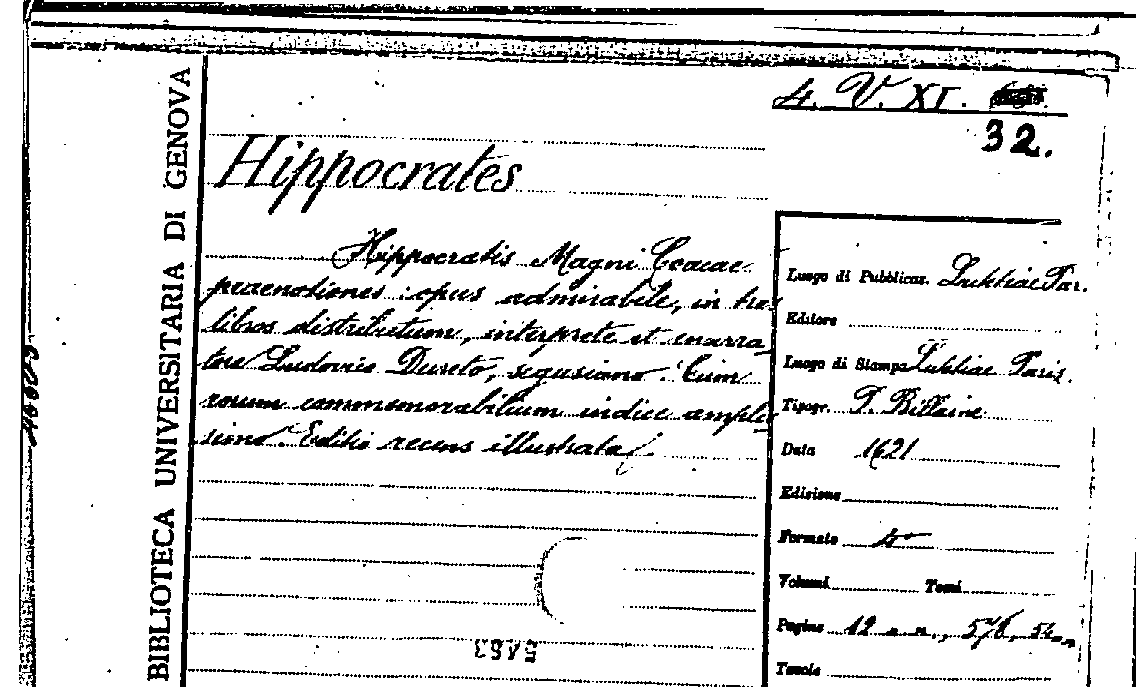 4. V. XI.
32.
BIBLIOTECA UNIVERSITARIA DI GENOVA
Hippocrates
Hippocratis Magni Coacae
praenotiones : opus admirabile, in tres
libros distributum, interprete et enarra
tore Ludovico Dureto, segusiano. Cum
rerum commemorabilium indice amplis
simo. Editio recens illustrata
Luogo di Pubblicaz. Lutetiae Par.
Editore
Luogo di Stampa Lutetiae Paris.
Tipogr. P. Billaine
Data 1621
Edizione
Formato 4°
Volumi Tomi
Pagine 12 n. n., 576, 54 n. n.
Tavole
5463